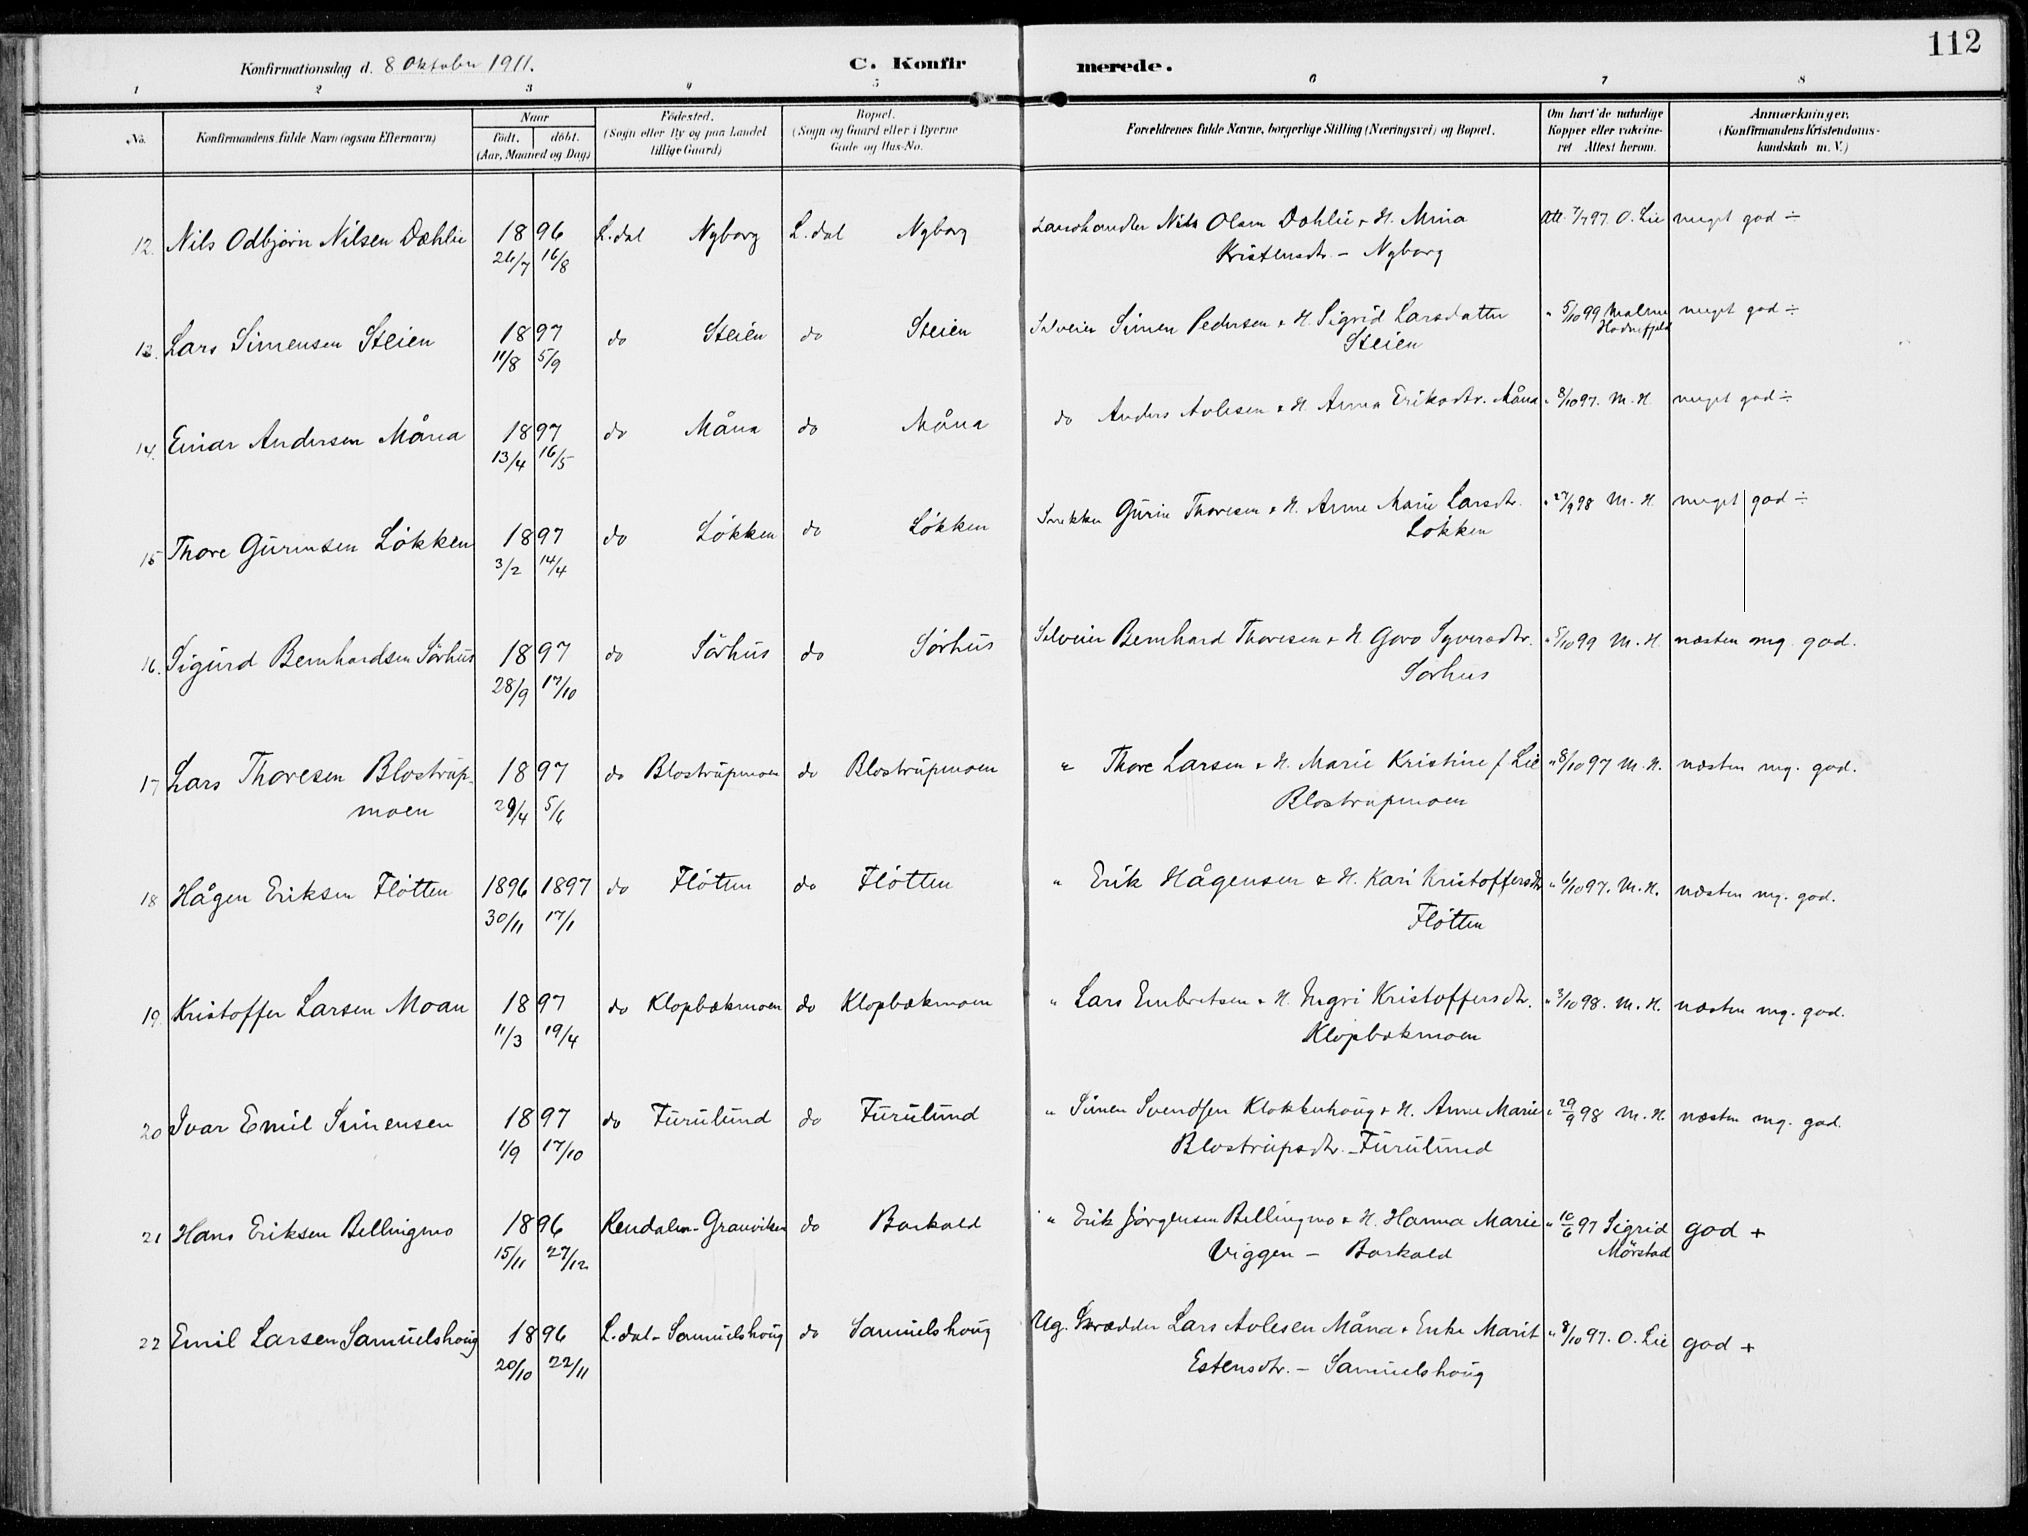 112
Konfirmationsdag d. 8 Oktober 1911.
C. Konfirmerede.
1 2 3 4 5 6 7 8
No.
Konfirmandens fulde Navn (ogsaa Efternavn)
Naar
födt. döbt.
(Aar, Maaned og Dag)
Födested.
(Sogn eller By og paa Landet
tillige Gaard)
Bopæl.
(Sogn og Gaard eller i Byerne
Gade og Hus-No.
Forældrenes fulde Navne, borgerlige Stilling (Næringsvei) og Bopæl.
Om havt de naturlige
Kopper eller vakcine-
ret Attest herom.
Anmærkninger.
(Konfirmandens Kristendoms-
kundskab m. V.)
12. Nils Odbjørn Nilsen Dæhlie 1896 L.dal Nyborg L.dal Nyborg Landhandler Nils Olsen Dæhlie & H. Mina att. 7/7 97 O. Lie meget god ÷
26/7 16/8 Kristensdtr. - Nyborg
13. Lars Simensen Steien 1897 do Steien do Steien Selveier Simen Pedersen & H. Sigrid Larsdatter " 5/10 99 Malene meget god ÷
11/8 5/9 Steien Hodnefjeld
14. Einar Andersen Måna 1897 do Måna do Måna do Anders Avlesen & H. Anna Eriksdtr. Måna " 8/10 97. M. H. meget god ÷
13/4 16/5
15 Thore Gurinsen Løkken 1897 do Løkken do Løkken Snekker Gurin Thoresen & H. Anne Marie Larsdtr. " 27/9 98 M. H. meget god ÷
3/2 14/4 Løkken
16. Sigurd Bernhardsen Sørhus 1897 do Sørhus do Sørhus Selveier Bernhard Thoresen & H. Goro Syversdtr. " 5/10 99 M. H. næsten mg. god.
28/9 17/10 Sørhus
17 Lars Thoresen Blostrup- 1897 do Blostrupmoen do Blostrupmoen " Thore Larsen & H. Marie Kristine f Lie " 8/10 97 M. H. næsten mg. god.
moen 29/4 5/6 Blostrupmoen
18 Hågen Eriksen Fløtten 1896 1897 do Fløtten do Fløtten " Erik Hågensen & H. Kari Kristoffersdtr " 6/10 97. M. H. næsten mg. god.
30/11 17/1 Fløtten
19. Kristoffer Larsen Moan 1897 do Klopbækmoen do Klopbækmoen " Lars Embretsen & H. Ingri Kristoffersdtr. " 3/10 98. M. H. næsten mg. god.
11/3 19/4 Klopbækmoen
20 Ivar Emil Simensen 1897 do Furulund do Furulund " Simen Svendsen Klokkerhoug & H. Anne Marie " 29/9 98 M. H. næsten mg. god.
1/9 17/10 Blostrupsdtr. - Furulund
21 Hans Eriksen Bellingmo 1896 Rendalen - Granviken do Barkald " Erik Jørgensen Bellingmo & H. Hanna Marie " 10/6 97 Sigrid god +
15/11 27/12 Viggen - Barkald Mørstad
22 Emil Larsen Samuelshoug 1896 L.dal - Samuelshoug do Samuelshoug Ug. Skrædder Lars Avlesen Måna & Enke Marit " 8/10 97. O. Lie god +
20/10 22/11 Estensdtr. - Samuelshoug